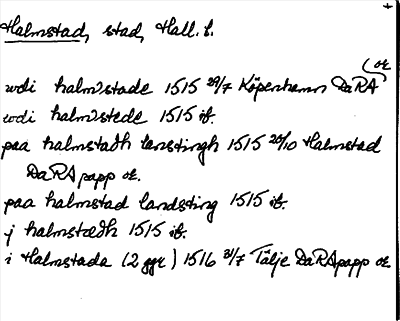 Halmstad, stad, Hall. l.
or
wdi halmstade 1515 29/7 Köpenhamn DaRA
wdi halmstede 1515 ib.
paa halmstadh lanstingh 1515 20/10 Halmstad
DaRA papp or.
paa halmstad landsting 1515 ib.
j halmstædh 1515 ib.
i Halmstada (2 ggr) 1516 31/7 Tälje DaRA papp or.